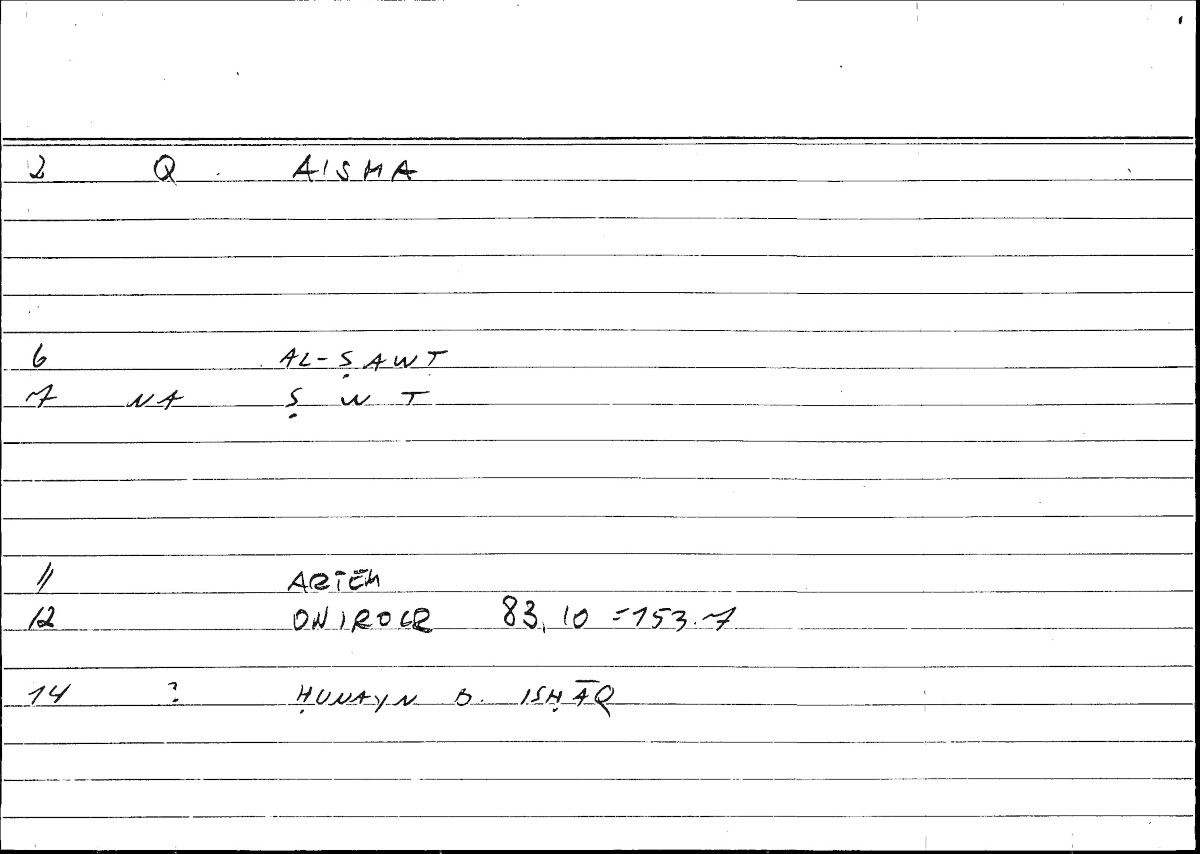 2 Q AISMA
6 AL-ṢAWT
7 NA Ṣ W T
11 ARTĒM
12 ONIROCR 83,10 = 153.7
14 ? ḤUNAYN B. ISḤĀQ